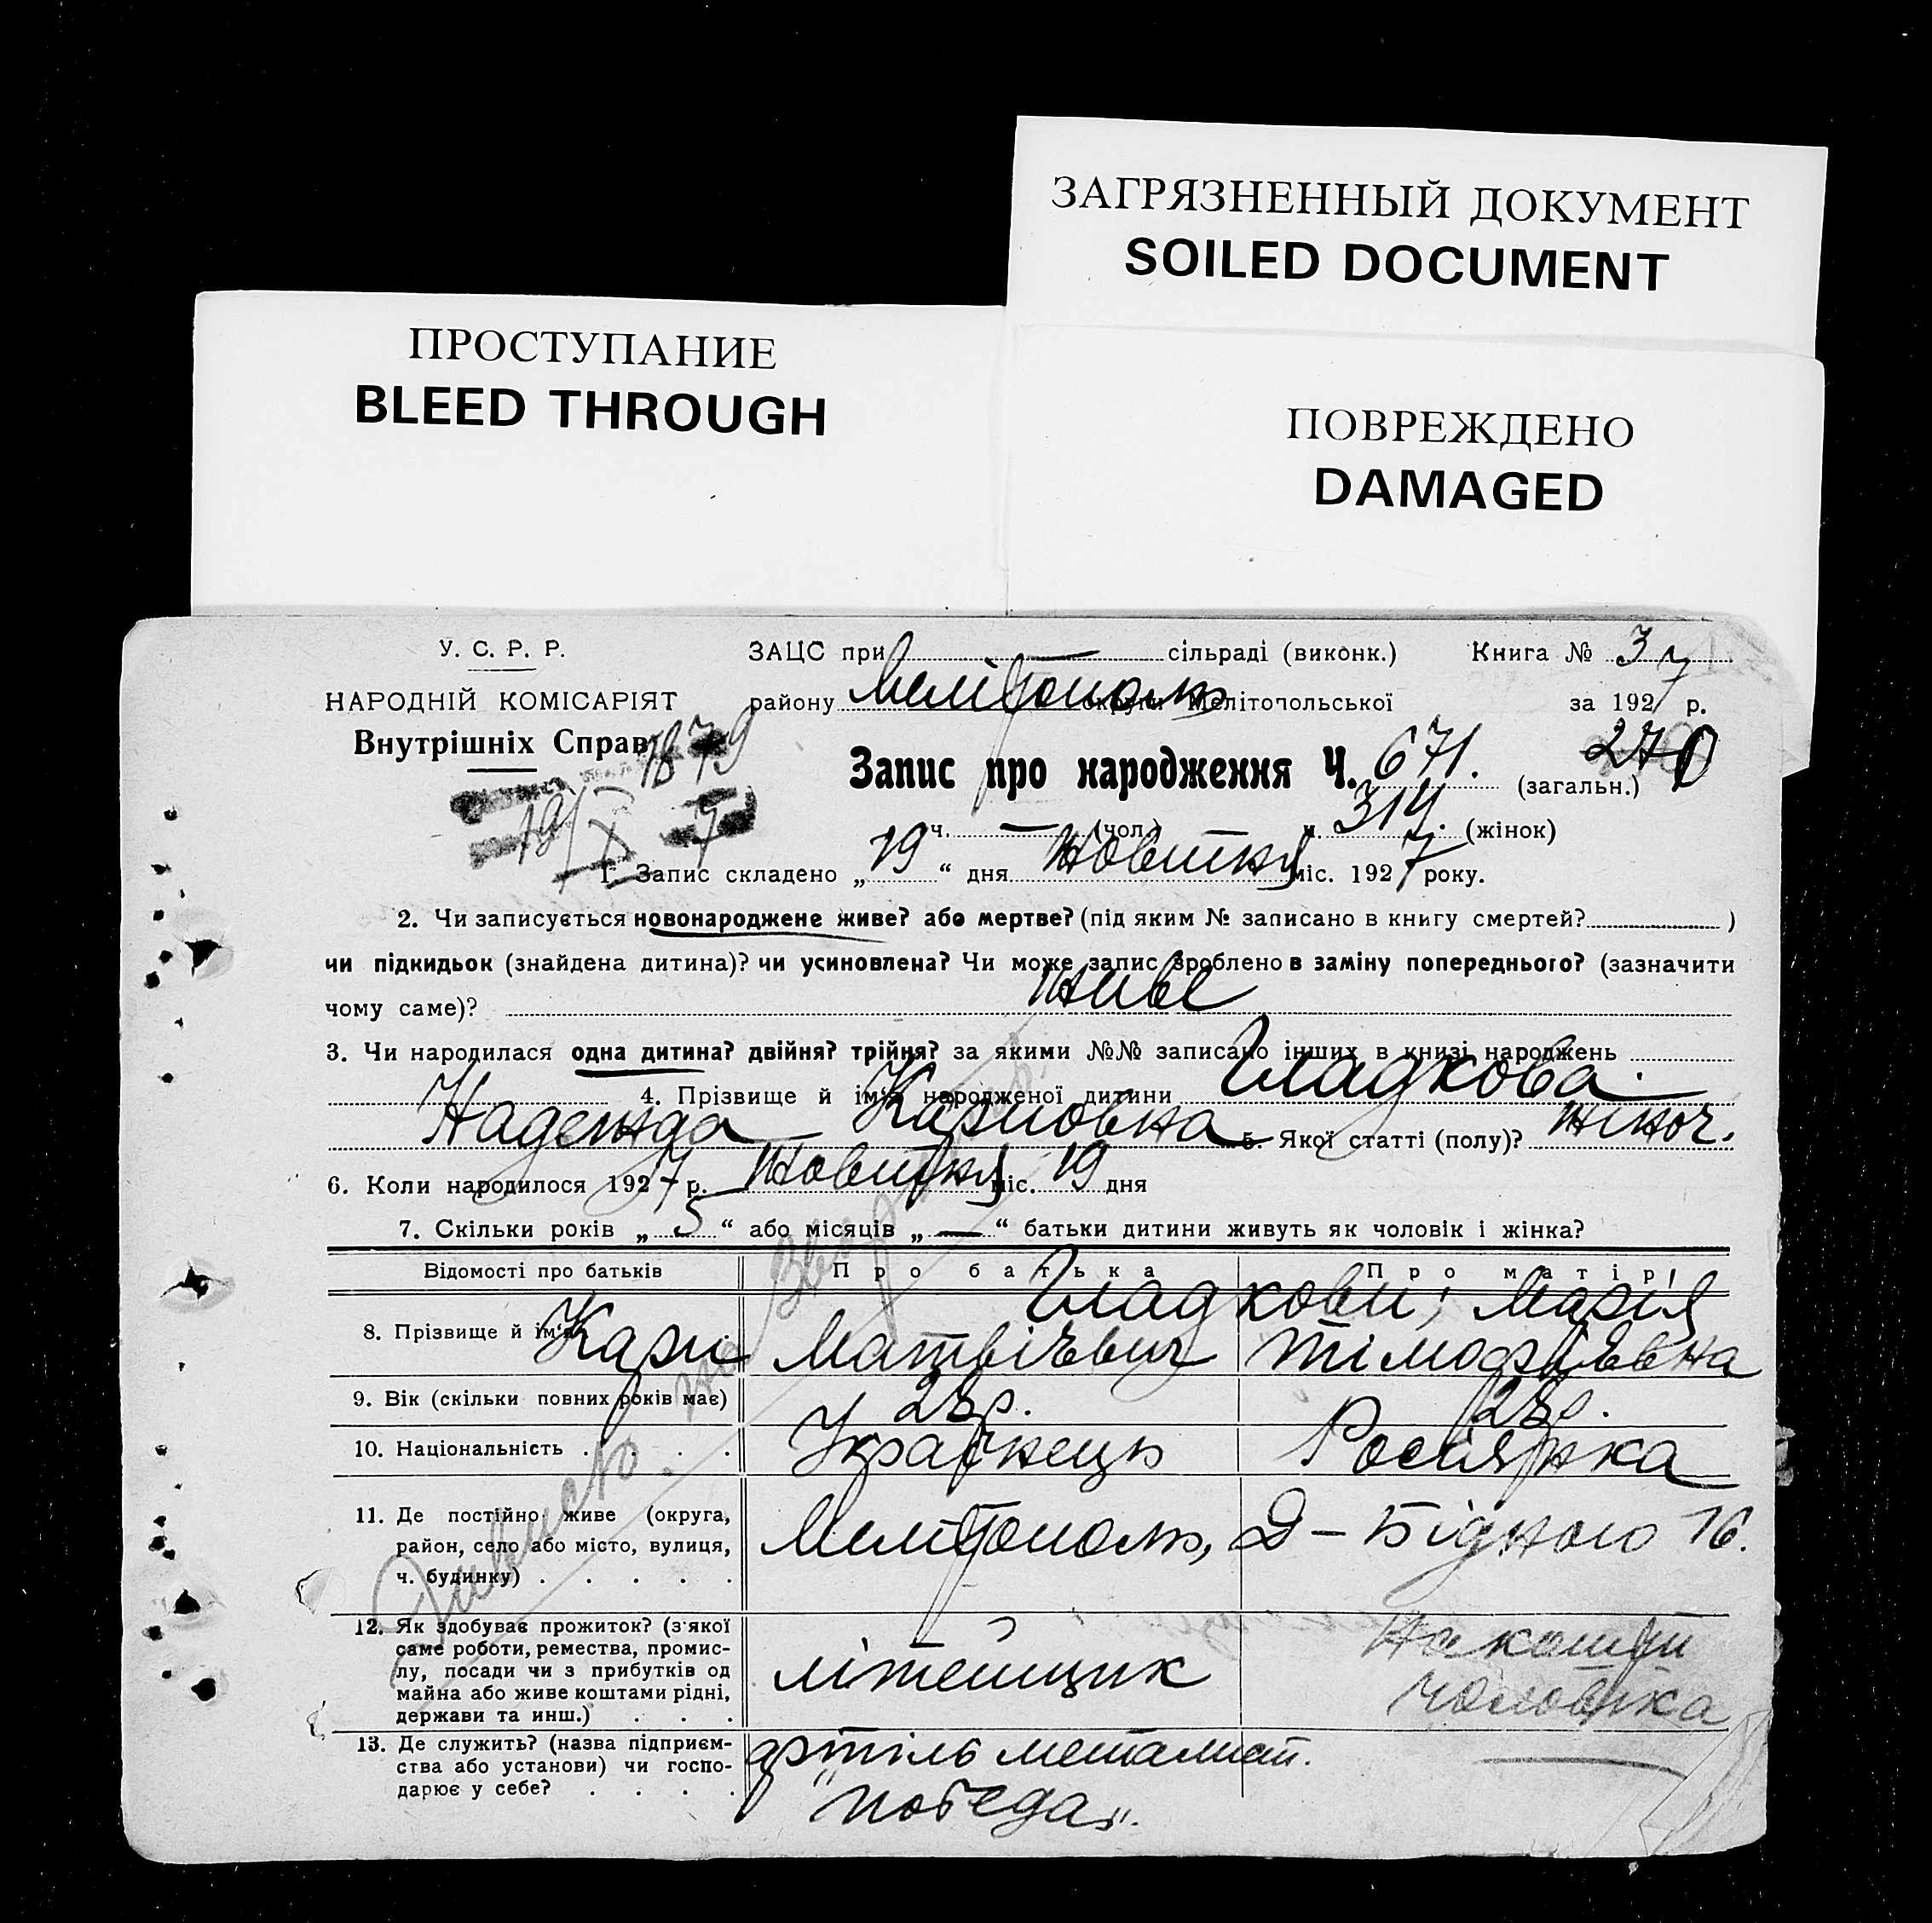 ЗАГРЯЗНЕННЫЙ ДОКУМЕНТ
SOILED DOCUMENT
ПРОСТУПАНИЕ
BLEED THROUGH
ПОВРЕЖДЕНО
DAMAGED
У. С. Р. Р.
НАРОДНІЙ КОМІСАРІЯТ
Внутрішніх Справ
1879
19/X 7
ЗАЦС при — сільраді (виконк.) Книга № 3
району Мелітополь округи Мелітопольської за 1927 р.
Запис про народження Ч. 671. (загальн.) 270
ч. — (чол.) ч. 314. (жінок)
1. Запис складено „ 19 “ дня Жовтня міс. 1927 року.
2. Чи записується новонароджене живе? або мертве? (під яким № записано в книгу смертей? )
чи підкидьок (знайдена дитина)? чи усиновлена? Чи може запис зроблено в заміну попереднього? (зазначити
чому саме)? живе
3. Чи народилася одна дитина? двійня? трійня? за якими №№ записано інших в книзі народжень
4. Прізвище й ім'я народженої дитини Гладкова
Надежда Карповна 5. Якої статті (полу)? жіноч.
6. Коли народилося 1927 р. Жовтня міс. 19 дня
7. Скільки років „ 5 “ або місяців „ — “ батьки дитини живуть як чоловік і жінка?
Відомості про батьків Про батька Про матір
Гладкови; Марія
8. Прізвище й ім'я Карп Матвієвич Тімофієвна
9. Вік (скільки повних років має) 28 р. 28 р.
10. Національність . . . . Українець Росіянка
11. Де постійно живе (округа,
район, село або місто, вулиця,
ч. будинку) . . . . .
Мелітополь, Д–Бідного 16.
12. Як здобуває прожиток? (з якої
саме роботи, ремества, промис-
лу, посади чи з прибутків од
майна або живе коштами рідні,
держави та инш.) . . .
літейщик
На кошти
чоловіка
13. Де служить? (назва підприєм-
ства або установи) чи госпо-
дарює у себе? . . . .
артіль металист.
"победа".